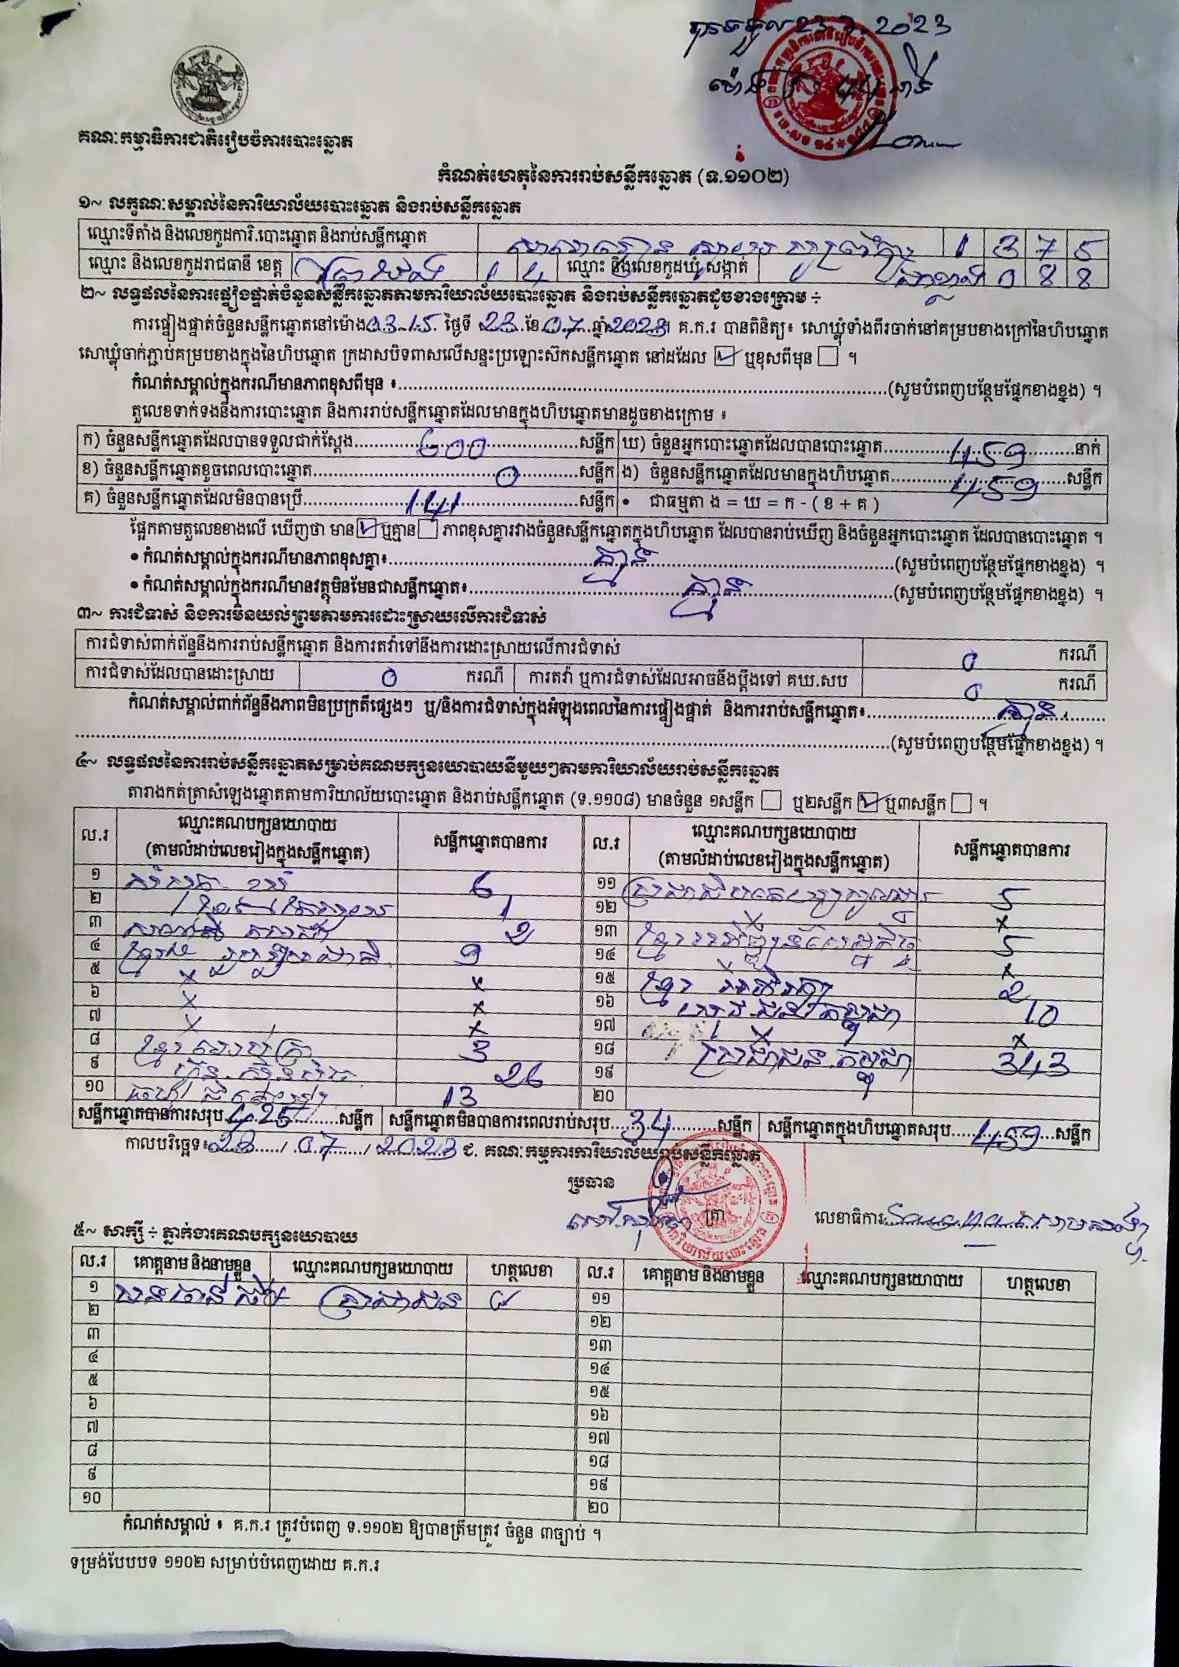 បានទទួល 23.7.2023
គណៈកម្មាធិការជាតិរៀបចំការបោះឆ្នោត
កំណត់ហេតុនៃការរាប់សន្លឹកឆ្នោត (ទ.១១០២)
១~ លក្ខណៈសម្គាល់នៃការិយាល័យបោះឆ្នោត និងរាប់សន្លឹកឆ្នោត
ឈ្មោះទីតាំង និងលេខកូដការិ.បោះឆ្នោត និងរាប់សន្លឹកឆ្នោត 1 3 7 5
ឈ្មោះ និងលេខកូដរាជធានី ខេត្ត ព្រៃវែង 1 4 ឈ្មោះ និងលេខកូដឃុំ សង្កាត់ 0 8 8
២~ លទ្ធផលនៃការផ្ទៀងផ្ទាត់ចំនួនសន្លឹកឆ្នោតតាមការិយាល័យបោះឆ្នោត និងរាប់សន្លឹកឆ្នោតដូចខាងក្រោម ÷
ការផ្ទៀងផ្ទាត់ចំនួនសន្លឹកឆ្នោតនៅម៉ោង 03:15 ថ្ងៃទី 23 ខែ 07 ឆ្នាំ 2023 គ.ក.រ បានពិនិត្យ៖ សោឃ្លុំទាំងពីរចាក់នៅគម្របខាងក្រៅនៃហិបឆ្នោត
សោឃ្លុំចាក់ភ្ជាប់គម្របខាងក្នុងនៃហិបឆ្នោត ក្រដាសបិទពាសលើសន្ទះប្រឡោះស៊កសន្លឹកឆ្នោត នៅដដែល ☑ ឬខុសពីមុន ☐ ។
កំណត់សម្គាល់ក្នុងករណីមានភាពខុសពីមុន ៖ (សូមបំពេញបន្ថែមផ្នែកខាងខ្នង) ។
តួលេខទាក់ទងនឹងការបោះឆ្នោត និងការរាប់សន្លឹកឆ្នោតដែលមានក្នុងហិបឆ្នោតមានដូចខាងក្រោម ៖
ក) ចំនួនសន្លឹកឆ្នោតដែលបានទទួលជាក់ស្តែង 600 សន្លឹក ឃ) ចំនួនអ្នកបោះឆ្នោតដែលបានបោះឆ្នោត 459 នាក់
ខ) ចំនួនសន្លឹកឆ្នោតខូចពេលបោះឆ្នោត 0 សន្លឹក ង) ចំនួនសន្លឹកឆ្នោតដែលមានក្នុងហិបឆ្នោត 459 សន្លឹក
គ) ចំនួនសន្លឹកឆ្នោតដែលមិនបានប្រើ 141 សន្លឹក • ជាធម្មតា ង = ឃ = ក - ( ខ + គ )
ផ្អែកតាមតួលេខខាងលើ ឃើញថា មាន ☑ ឬគ្មាន ☐ ភាពខុសគ្នារវាងចំនួនសន្លឹកឆ្នោតក្នុងហិបឆ្នោត ដែលបានរាប់ឃើញ និងចំនួនអ្នកបោះឆ្នោត ដែលបានបោះឆ្នោត ។
• កំណត់សម្គាល់ក្នុងករណីមានភាពខុសគ្នា៖ គ្មាន (សូមបំពេញបន្ថែមផ្នែកខាងខ្នង) ។
• កំណត់សម្គាល់ក្នុងករណីមានវត្ថុមិនមែនជាសន្លឹកឆ្នោត៖ គ្មាន (សូមបំពេញបន្ថែមផ្នែកខាងខ្នង) ។
៣~ ការជំទាស់ និងការមិនយល់ព្រមតាមការដោះស្រាយលើការជំទាស់
ការជំទាស់ពាក់ព័ន្ធនឹងការរាប់សន្លឹកឆ្នោត និងការតវ៉ាទៅនឹងការដោះស្រាយលើការជំទាស់ 0 ករណី
ការជំទាស់ដែលបានដោះស្រាយ 0 ករណី ការតវ៉ា ឬការជំទាស់ដែលអាចនឹងប្តឹងទៅ គឃ.សប 0 ករណី
កំណត់សម្គាល់ពាក់ព័ន្ធនឹងភាពមិនប្រក្រតីផ្សេងៗ ឬ/និងការជំទាស់ក្នុងអំឡុងពេលនៃការផ្ទៀងផ្ទាត់ និងការរាប់សន្លឹកឆ្នោត៖ គ្មាន
(សូមបំពេញបន្ថែមផ្នែកខាងខ្នង) ។
៤~ លទ្ធផលនៃការរាប់សន្លឹកឆ្នោតសម្រាប់គណបក្សនយោបាយនីមួយៗតាមការិយាល័យរាប់សន្លឹកឆ្នោត
តារាងកត់ត្រាសំឡេងឆ្នោតតាមការិយាល័យបោះឆ្នោត និងរាប់សន្លឹកឆ្នោត (ទ.១១០៨) មានចំនួន ១សន្លឹក ☐ ឬ២សន្លឹក ☑ ឬ៣សន្លឹក ☐ ។
ល.រ ឈ្មោះគណបក្សនយោបាយ (តាមលំដាប់លេខរៀងក្នុងសន្លឹកឆ្នោត) សន្លឹកឆ្នោតបានការ ល.រ ឈ្មោះគណបក្សនយោបាយ (តាមលំដាប់លេខរៀងក្នុងសន្លឹកឆ្នោត) សន្លឹកឆ្នោតបានការ
១ 6 ១១ 5
២ 1 ១២ x x
៣ 2 ១៣ ខ្មែរអភិវឌ្ឍន៍សេដ្ឋកិច្ច 5
៤ ខ្មែររួបរួមជាតិ 9 ១៤ x
៥ x x ១៥ ខ្មែរ 2
៦ x x ១៦ 10
៧ x x ១៧ x x
៨ ខ្មែរ 3 ១៨ ប្រជាជនកម្ពុជា 343
៩ 26 ១៩
១០ 13 ២០
សន្លឹកឆ្នោតបានការសរុប 425 សន្លឹក សន្លឹកឆ្នោតមិនបានការពេលរាប់សរុប 34 សន្លឹក សន្លឹកឆ្នោតក្នុងហិបឆ្នោតសរុប 459 សន្លឹក
កាលបរិច្ឆេទ៖ 23 / 07 / 2023 ជ. គណៈកម្មការការិយាល័យរាប់សន្លឹកឆ្នោត
ប្រធាន
ត្រា
លេខាធិការ
៥~ សាក្សី ÷ ភ្នាក់ងារគណបក្សនយោបាយ
ល.រ គោត្តនាម និងនាមខ្លួន ឈ្មោះគណបក្សនយោបាយ ហត្ថលេខា ល.រ គោត្តនាម និងនាមខ្លួន ឈ្មោះគណបក្សនយោបាយ ហត្ថលេខា
១ ប្រជាជន ១១
២ ១២
៣ ១៣
៤ ១៤
៥ ១៥
៦ ១៦
៧ ១៧
៨ ១៨
៩ ១៩
១០ ២០
កំណត់សម្គាល់ ៖ គ.ក.រ ត្រូវបំពេញ ទ.១១០២ ឱ្យបានត្រឹមត្រូវ ចំនួន ៣ច្បាប់ ។
ទម្រង់បែបបទ ១១០២ សម្រាប់បំពេញដោយ គ.ក.រ